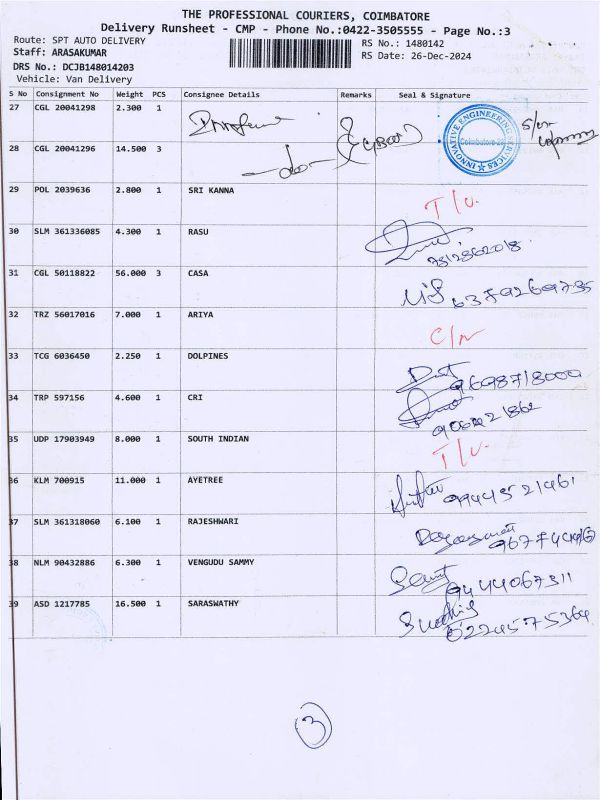 THE PROFESSIONAL COURIERS, COIMBATORE
Delivery Runsheet - CMP - Phone No.:0422-3505555 - Page No.:3
Route: SPT AUTO DELIVERY RS No.: 1480142
Staff: ARASAKUMAR RS Date: 26-Dec-2024
DRS No.: DCJB148014203
Vehicle: Van Delivery
S No Consignment No Weight PCS Consignee Details Remarks Seal & Signature
27 CGL 20041298 2.300 1
INNOVATIVE ENGINEERING SERVICES
28 CGL 20041296 14.500 3
29 POL 2039636 2.800 1 SRI KANNA
T/U.
30 SLM 361336085 4.300 1 RASU
31 CGL 50118822 56.000 3 CASA
6379269735
32 TRZ 56017016 7.000 1 ARIYA
33 TCG 6036450 2.250 1 DOLPINES
9698718000
34 TRP 597156 4.600 1 CRI
35 UDP 17903949 8.000 1 SOUTH INDIAN
T/U.
36 KLM 700915 11.000 1 AYETREE
37 SLM 361318060 6.100 1 RAJESHWARI
38 NLM 90432886 6.300 1 VENGUDU SAMMY
9444067311
39 ASD 1217785 16.500 1 SARASWATHY
3